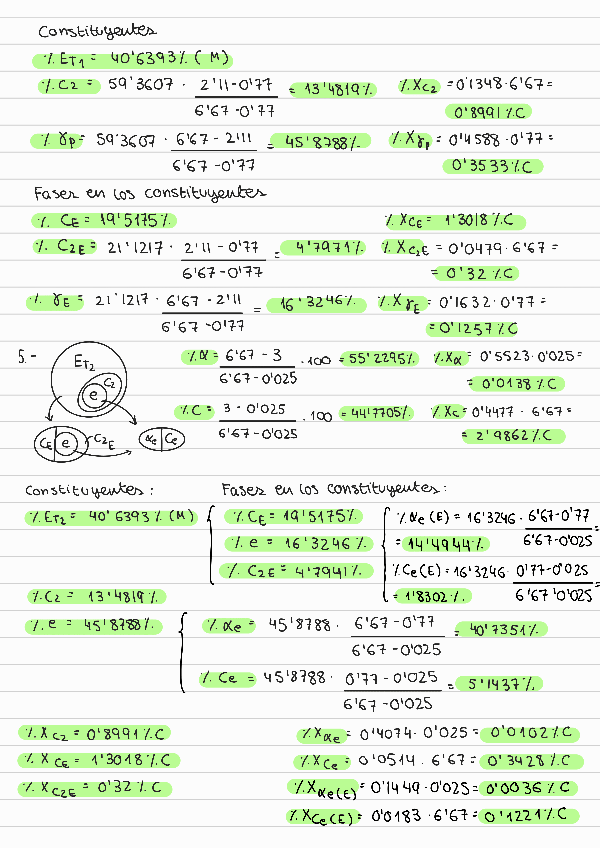 Constituyentes
% ET1 = 40'6393% (M)
% C2 = 59'3607 · (2'11-0'77)/(6'67-0'77) = 13'4819% % XC2 = 0'1348·6'67 =
0'8991 %C
% γp = 59'3607 · (6'67-2'11)/(6'67-0'77) = 45'8788% % Xγp = 0'4588·0'77 =
0'3533 %C
Fases en los constituyentes
% CE = 19'5175% % XCE = 1'3018 %C
% C2E = 21'1217 · (2'11-0'77)/(6'67-0'77) = 4'7971% % XC2E = 0'0479·6'67 =
= 0'32 %C
% γE = 21'1217 · (6'67-2'11)/(6'67-0'77) = 16'3246% % XγE = 0'1632·0'77 =
= 0'1257 %C
5.- ET2 C2 e CE e C2E αe Ce
% α = (6'67-3)/(6'67-0'025) · 100 = 55'2295% % Xα = 0'5523·0'025 =
= 0'0138 %C
% C = (3-0'025)/(6'67-0'025) · 100 = 44'7705% % XC = 0'4477·6'67 =
= 2'9862 %C
Constituyentes: Fases en los constituyentes:
% ET2 = 40'6393% (M) % CE = 19'5175% % αe (E) = 16'3246 · (6'67-0'77)/(6'67-0'025) =
% e = 16'3246% = 14'4944%
% C2E = 4'7941% % Ce (E) = 16'3246 · (0'77-0'025)/(6'67-0'025) =
% C2 = 13'4819% = 1'8302%
% e = 45'8788% % αe = 45'8788 · (6'67-0'77)/(6'67-0'025) = 40'7351%
% Ce = 45'8788 · (0'77-0'025)/(6'67-0'025) = 5'1437%
% XC2 = 0'8991 %C % Xαe = 0'4074·0'025 = 0'0102 %C
% XCE = 1'3018 %C % XCe = 0'0514·6'67 = 0'3428 %C
% XC2E = 0'32 %C % Xαe(E) = 0'1449·0'025 = 0'0036 %C
% XCe(E) = 0'0183·6'67 = 0'1221 %C